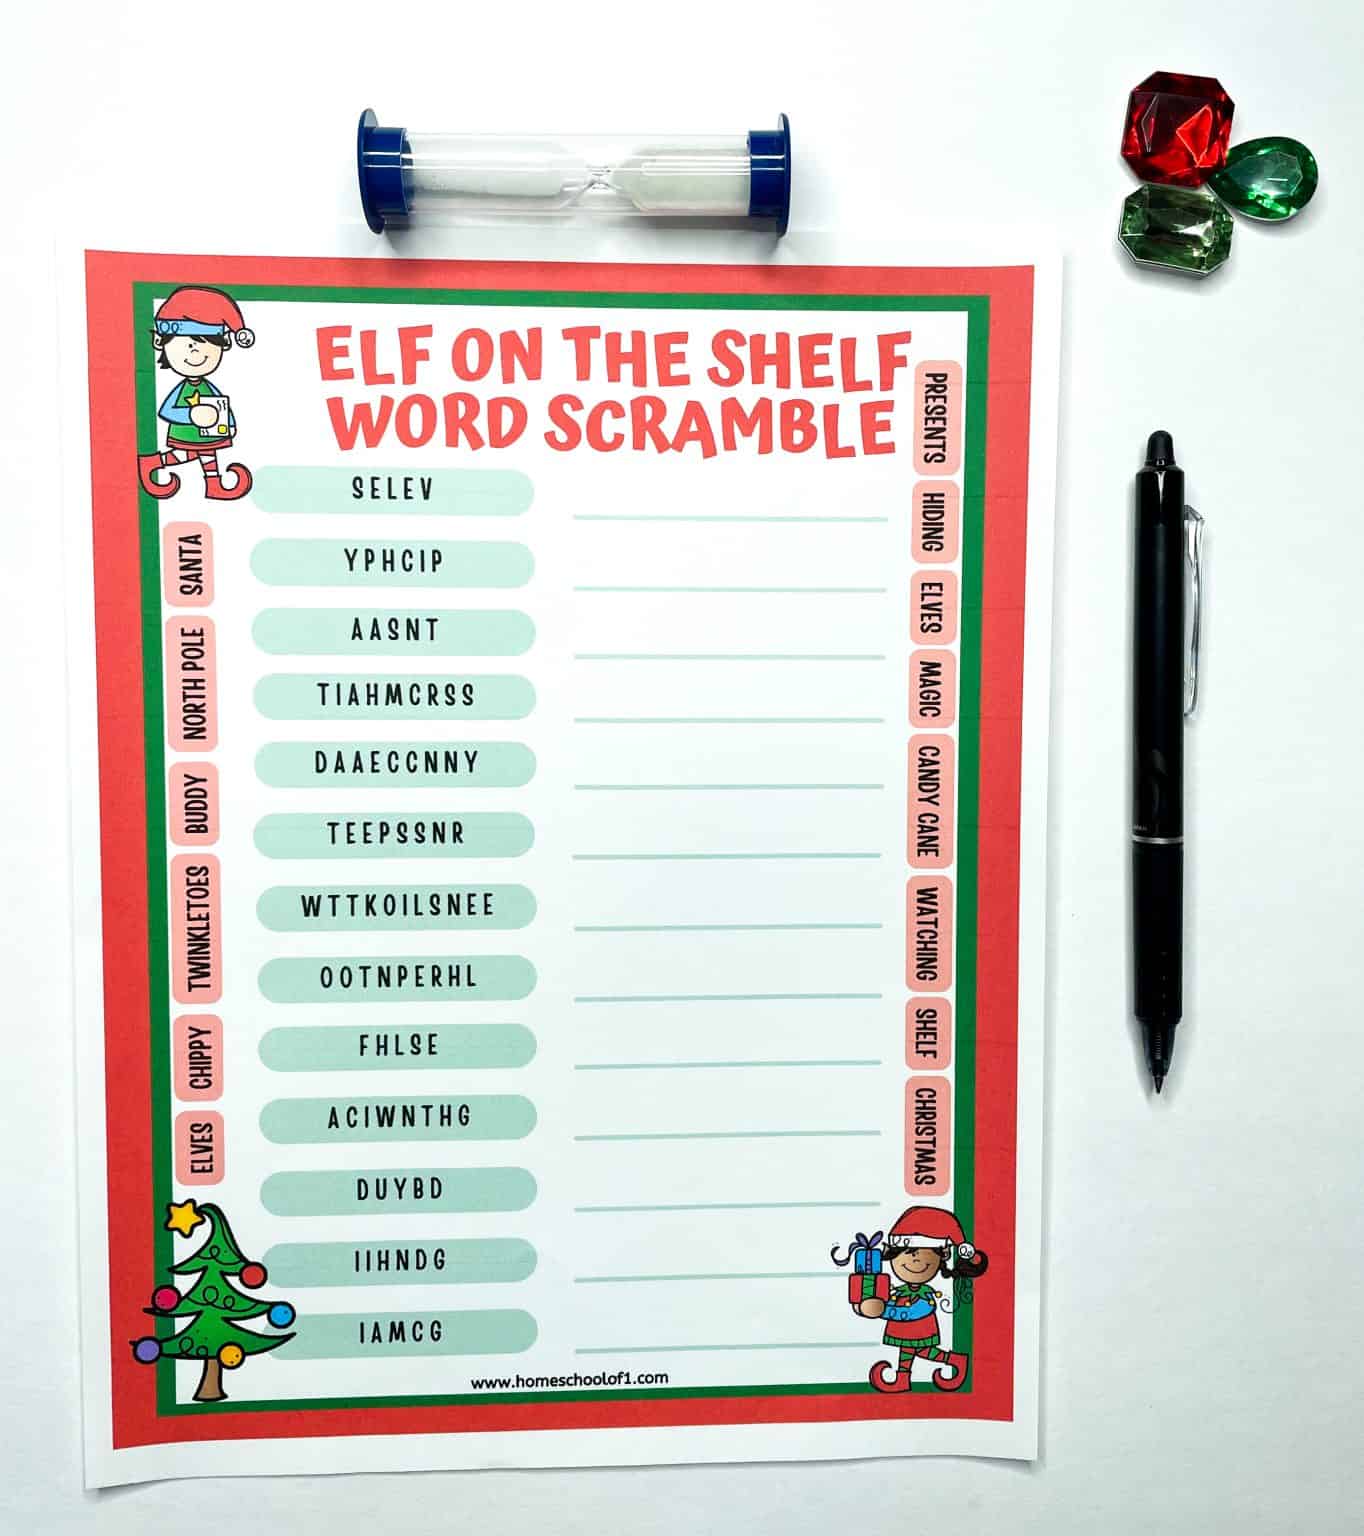 ELF ON THE SHELF
WORD SCRAMBLE
SELEV
YPHCIP
AASNT
TIAHMCRSS
DAAECCNNY
TEEPSSNR
WTTKOILSNEE
OOTNPERHL
FHLSE
ACIWNTHG
DUYBD
IIHNDG
IAMCG
SANTA
NORTH POLE
BUDDY
TWINKLETOES
CHIPPY
ELVES
PRESENTS
HIDING
ELVES
MAGIC
CANDY CANE
WATCHING
SHELF
CHRISTMAS
www.homeschoolof1.com